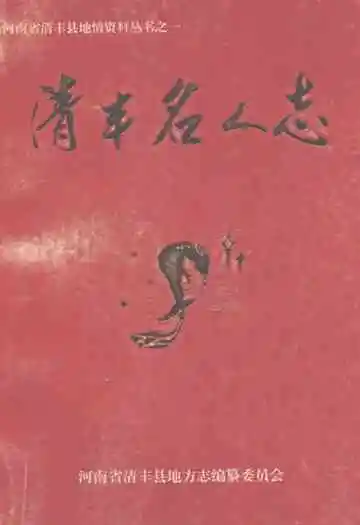 河南省清丰县地情资料丛书之一
清丰名人志
河南省清丰县地方志编纂委员会